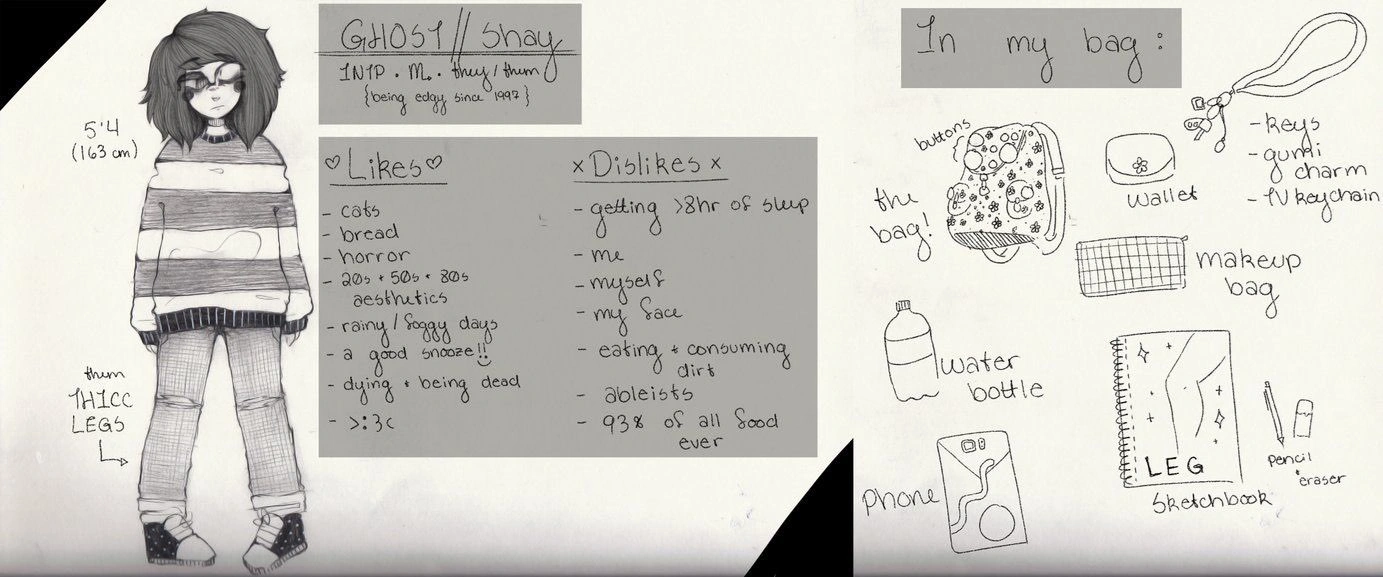 GHOST // Shay
INTP . M. . they / them
{being edgy since 1997}
5'4
(163 cm)
them
THICC
LEGS
♡Likes♡
- cats
- bread
- horror
- 20s + 50s + 80s
aesthetics
- rainy / foggy days
- a good snooze!!
- dying + being dead
- >:3c
x Dislikes x
- getting >8hr of sleep
- me
- myself
- my face
- eating + consuming
dirt
- ableists
- 93% of all food
ever
In my bag:
buttons
the
bag!
wallet
- keys
- gumi
charm
- TV keychain
makeup
bag
water
bottle
phone
LEG
sketchbook
pencil
+ eraser